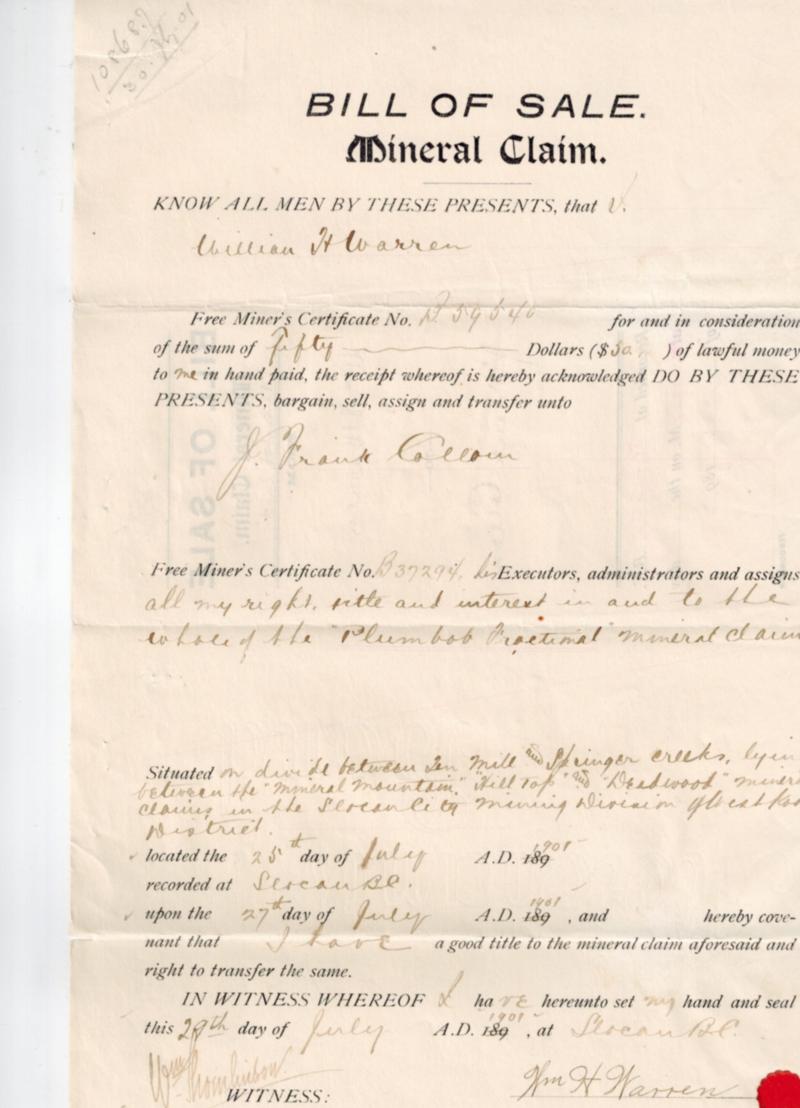 108687
30.
BILL OF SALE.
Mineral Claim.
KNOW ALL MEN BY THESE PRESENTS, that I.
William H Warren
Free Miner's Certificate No. B 59540 for and in consideration
of the sum of fifty Dollars ($50 ) of lawful money
to me in hand paid, the receipt whereof is hereby acknowledged DO BY THESE
PRESENTS, bargain, sell, assign and transfer unto
J. Frank Collom
Free Miner's Certificate No. B37294, his Executors, administrators and assigns
all my right, title and interest in and to the
whole of the "Plumbob Fractional" mineral claim
Situated on divide between Ten Mile and Springer creeks, lyin
between the "Mineral Mountain," "Hill Top" and "Deadwood" minera
claims in the Slocan City Mining Division of West Koo
District.
located the 25th day of July A.D. 189 1901
recorded at Slocan B.C.
upon the 27th day of July A.D. 189 1901 , and hereby cove-
nant that I have a good title to the mineral claim aforesaid and
right to transfer the same.
IN WITNESS WHEREOF I have hereunto set my hand and seal
this 29th day of July A.D. 189 1901, at Slocan B.C.
Wm Tomlinson
WITNESS: Wm H Warren